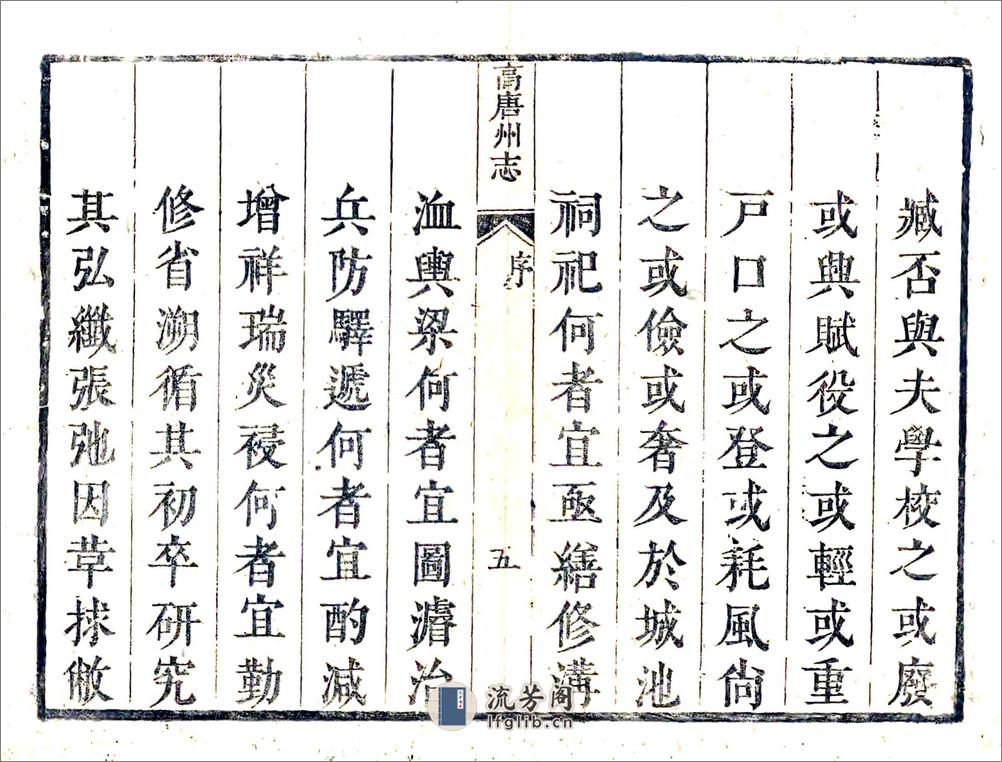 臧否與夫學校之或廢
或興賦役之或輕或重
戸口之或登或耗風尙
之或儉或奢及於城池
祠祀何者宜亟繕修溝
高唐州志
序
五
洫輿梁何者宜圖濬治
兵防驛遞何者宜酌減
增祥瑞災祲何者宜勤
修省溯循其初卒研究
其弘纖張弛因革捄敝
流芳阁
lfglib.cn